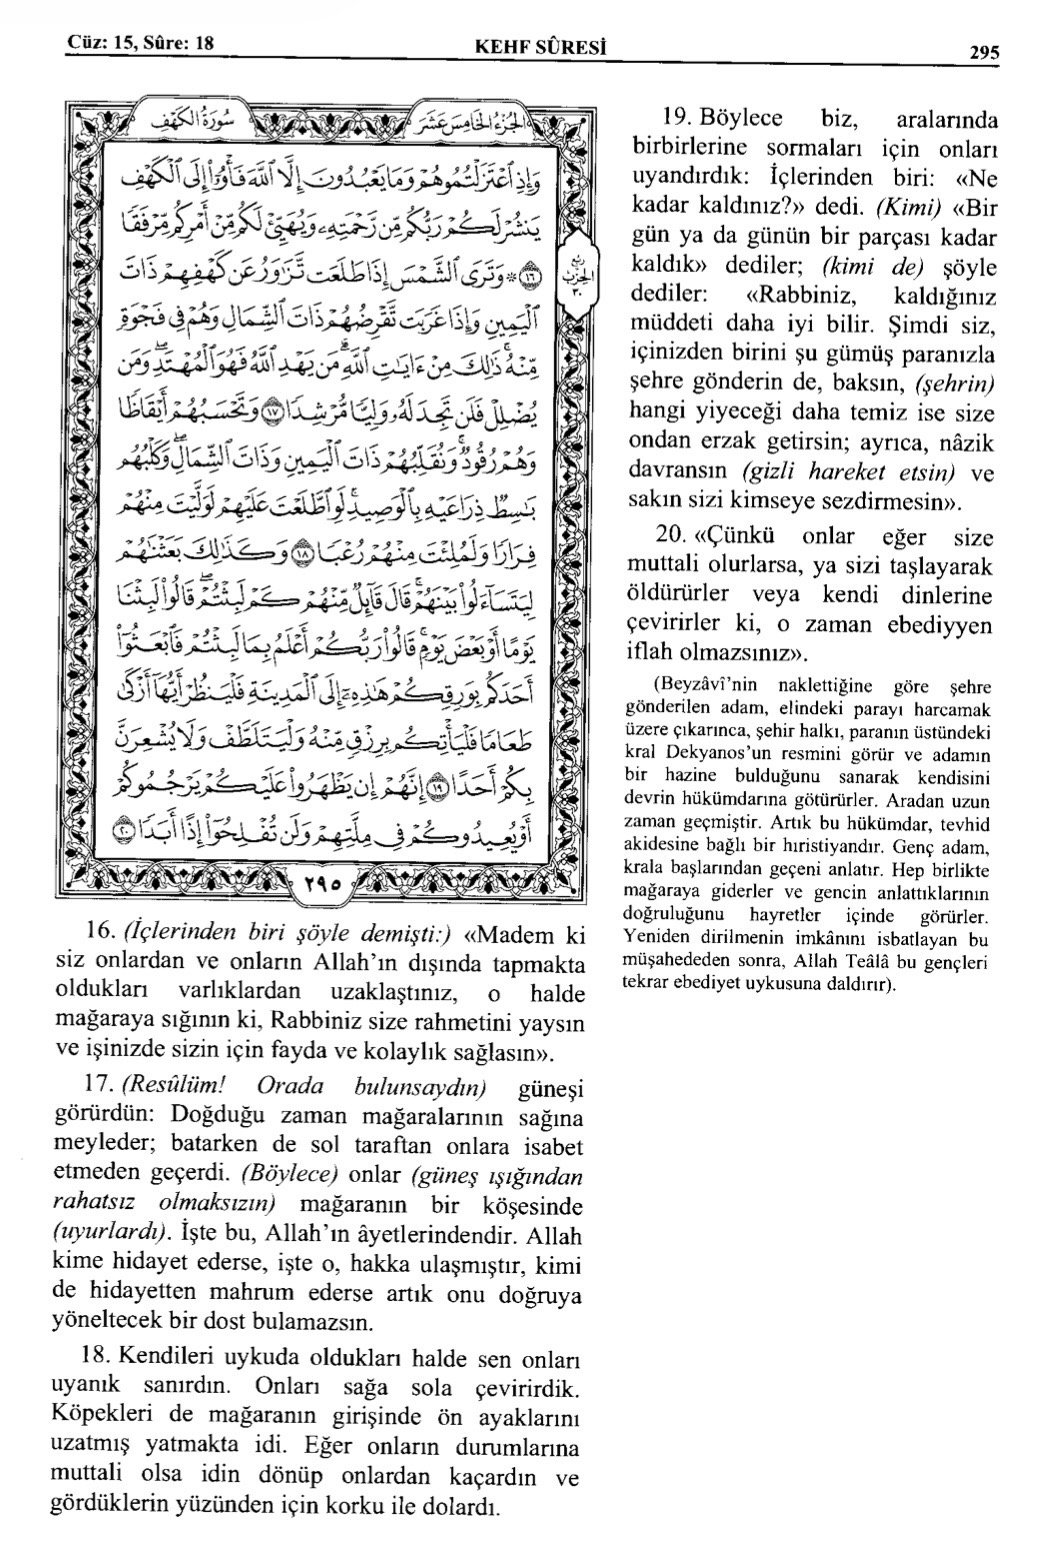 Cüz: 15, Sûre: 18
KEHF SÛRESİ
295
سُورَةُ الكَهْفِ
الجُزْءُ الخَامِسَ عَشَرَ
وَإِذِ ٱعْتَزَلْتُمُوهُمْ وَمَا يَعْبُدُونَ إِلَّا ٱللَّهَ فَأْوُۥٓا۟ إِلَى ٱلْكَهْفِ
يَنشُرْ لَكُمْ رَبُّكُم مِّن رَّحْمَتِهِۦ وَيُهَيِّئْ لَكُم مِّنْ أَمْرِكُم مِّرْفَقًا
١٦ * وَتَرَى ٱلشَّمْسَ إِذَا طَلَعَت تَّزَٰوَرُ عَن كَهْفِهِمْ ذَاتَ
ٱلْيَمِينِ وَإِذَا غَرَبَت تَّقْرِضُهُمْ ذَاتَ ٱلشِّمَالِ وَهُمْ فِى فَجْوَةٍ
مِّنْهُ ۚ ذَٰلِكَ مِنْ ءَايَٰتِ ٱللَّهِ ۗ مَن يَهْدِ ٱللَّهُ فَهُوَ ٱلْمُهْتَدِ ۖ وَمَن
يُضْلِلْ فَلَن تَجِدَ لَهُۥ وَلِيًّا مُّرْشِدًا ١٧ وَتَحْسَبُهُمْ أَيْقَاظًا
وَهُمْ رُقُودٌ ۚ وَنُقَلِّبُهُمْ ذَاتَ ٱلْيَمِينِ وَذَاتَ ٱلشِّمَالِ ۖ وَكَلْبُهُم
بَٰسِطٌ ذِرَاعَيْهِ بِٱلْوَصِيدِ ۚ لَوِ ٱطَّلَعْتَ عَلَيْهِمْ لَوَلَّيْتَ مِنْهُمْ
فِرَارًا وَلَمُلِئْتَ مِنْهُمْ رُعْبًا ١٨ وَكَذَٰلِكَ بَعَثْنَٰهُمْ
لِيَتَسَآءَلُوا۟ بَيْنَهُمْ ۚ قَالَ قَآئِلٌ مِّنْهُمْ كَمْ لَبِثْتُمْ ۖ قَالُوا۟ لَبِثْنَا
يَوْمًا أَوْ بَعْضَ يَوْمٍ ۚ قَالُوا۟ رَبُّكُمْ أَعْلَمُ بِمَا لَبِثْتُمْ فَٱبْعَثُوٓا۟
أَحَدَكُم بِوَرِقِكُمْ هَٰذِهِۦٓ إِلَى ٱلْمَدِينَةِ فَلْيَنظُرْ أَيُّهَآ أَزْكَىٰ
طَعَامًا فَلْيَأْتِكُم بِرِزْقٍ مِّنْهُ وَلْيَتَلَطَّفْ وَلَا يُشْعِرَنَّ
بِكُمْ أَحَدًا ١٩ إِنَّهُمْ إِن يَظْهَرُوا۟ عَلَيْكُمْ يَرْجُمُوكُمْ
أَوْ يُعِيدُوكُمْ فِى مِلَّتِهِمْ وَلَن تُفْلِحُوٓا۟ إِذًا أَبَدًا ٢٠
ربع
الحزب
٣٠
٢٩٥
16. (İçlerinden biri şöyle demişti:) «Madem ki
siz onlardan ve onların Allah’ın dışında tapmakta
oldukları varlıklardan uzaklaştınız, o halde
mağaraya sığının ki, Rabbiniz size rahmetini yaysın
ve işinizde sizin için fayda ve kolaylık sağlasın».
17. (Resûlüm! Orada bulunsaydın) güneşi
görürdün: Doğduğu zaman mağaralarının sağına
meyleder; batarken de sol taraftan onlara isabet
etmeden geçerdi. (Böylece) onlar (güneş ışığından
rahatsız olmaksızın) mağaranın bir köşesinde
(uyurlardı). İşte bu, Allah’ın âyetlerindendir. Allah
kime hidayet ederse, işte o, hakka ulaşmıştır, kimi
de hidayetten mahrum ederse artık onu doğruya
yöneltecek bir dost bulamazsın.
18. Kendileri uykuda oldukları halde sen onları
uyanık sanırdın. Onları sağa sola çevirirdik.
Köpekleri de mağaranın girişinde ön ayaklarını
uzatmış yatmakta idi. Eğer onların durumlarına
muttali olsa idin dönüp onlardan kaçardın ve
gördüklerin yüzünden için korku ile dolardı.
19. Böylece biz, aralarında
birbirlerine sormaları için onları
uyandırdık: İçlerinden biri: «Ne
kadar kaldınız?» dedi. (Kimi) «Bir
gün ya da günün bir parçası kadar
kaldık» dediler; (kimi de) şöyle
dediler: «Rabbiniz, kaldığınız
müddeti daha iyi bilir. Şimdi siz,
içinizden birini şu gümüş paranızla
şehre gönderin de, baksın, (şehrin)
hangi yiyeceği daha temiz ise size
ondan erzak getirsin; ayrıca, nâzik
davransın (gizli hareket etsin) ve
sakın sizi kimseye sezdirmesin».
20. «Çünkü onlar eğer size
muttali olurlarsa, ya sizi taşlayarak
öldürürler veya kendi dinlerine
çevirirler ki, o zaman ebediyyen
iflah olmazsınız».
(Beyzâvî’nin naklettiğine göre şehre
gönderilen adam, elindeki parayı harcamak
üzere çıkarınca, şehir halkı, paranın üstündeki
kral Dekyanos’un resmini görür ve adamın
bir hazine bulduğunu sanarak kendisini
devrin hükümdarına götürürler. Aradan uzun
zaman geçmiştir. Artık bu hükümdar, tevhid
akidesine bağlı bir hıristiyandır. Genç adam,
krala başlarından geçeni anlatır. Hep birlikte
mağaraya giderler ve gencin anlattıklarının
doğruluğunu hayretler içinde görürler.
Yeniden dirilmenin imkânını isbatlayan bu
müşahededen sonra, Allah Teâlâ bu gençleri
tekrar ebediyet uykusuna daldırır).